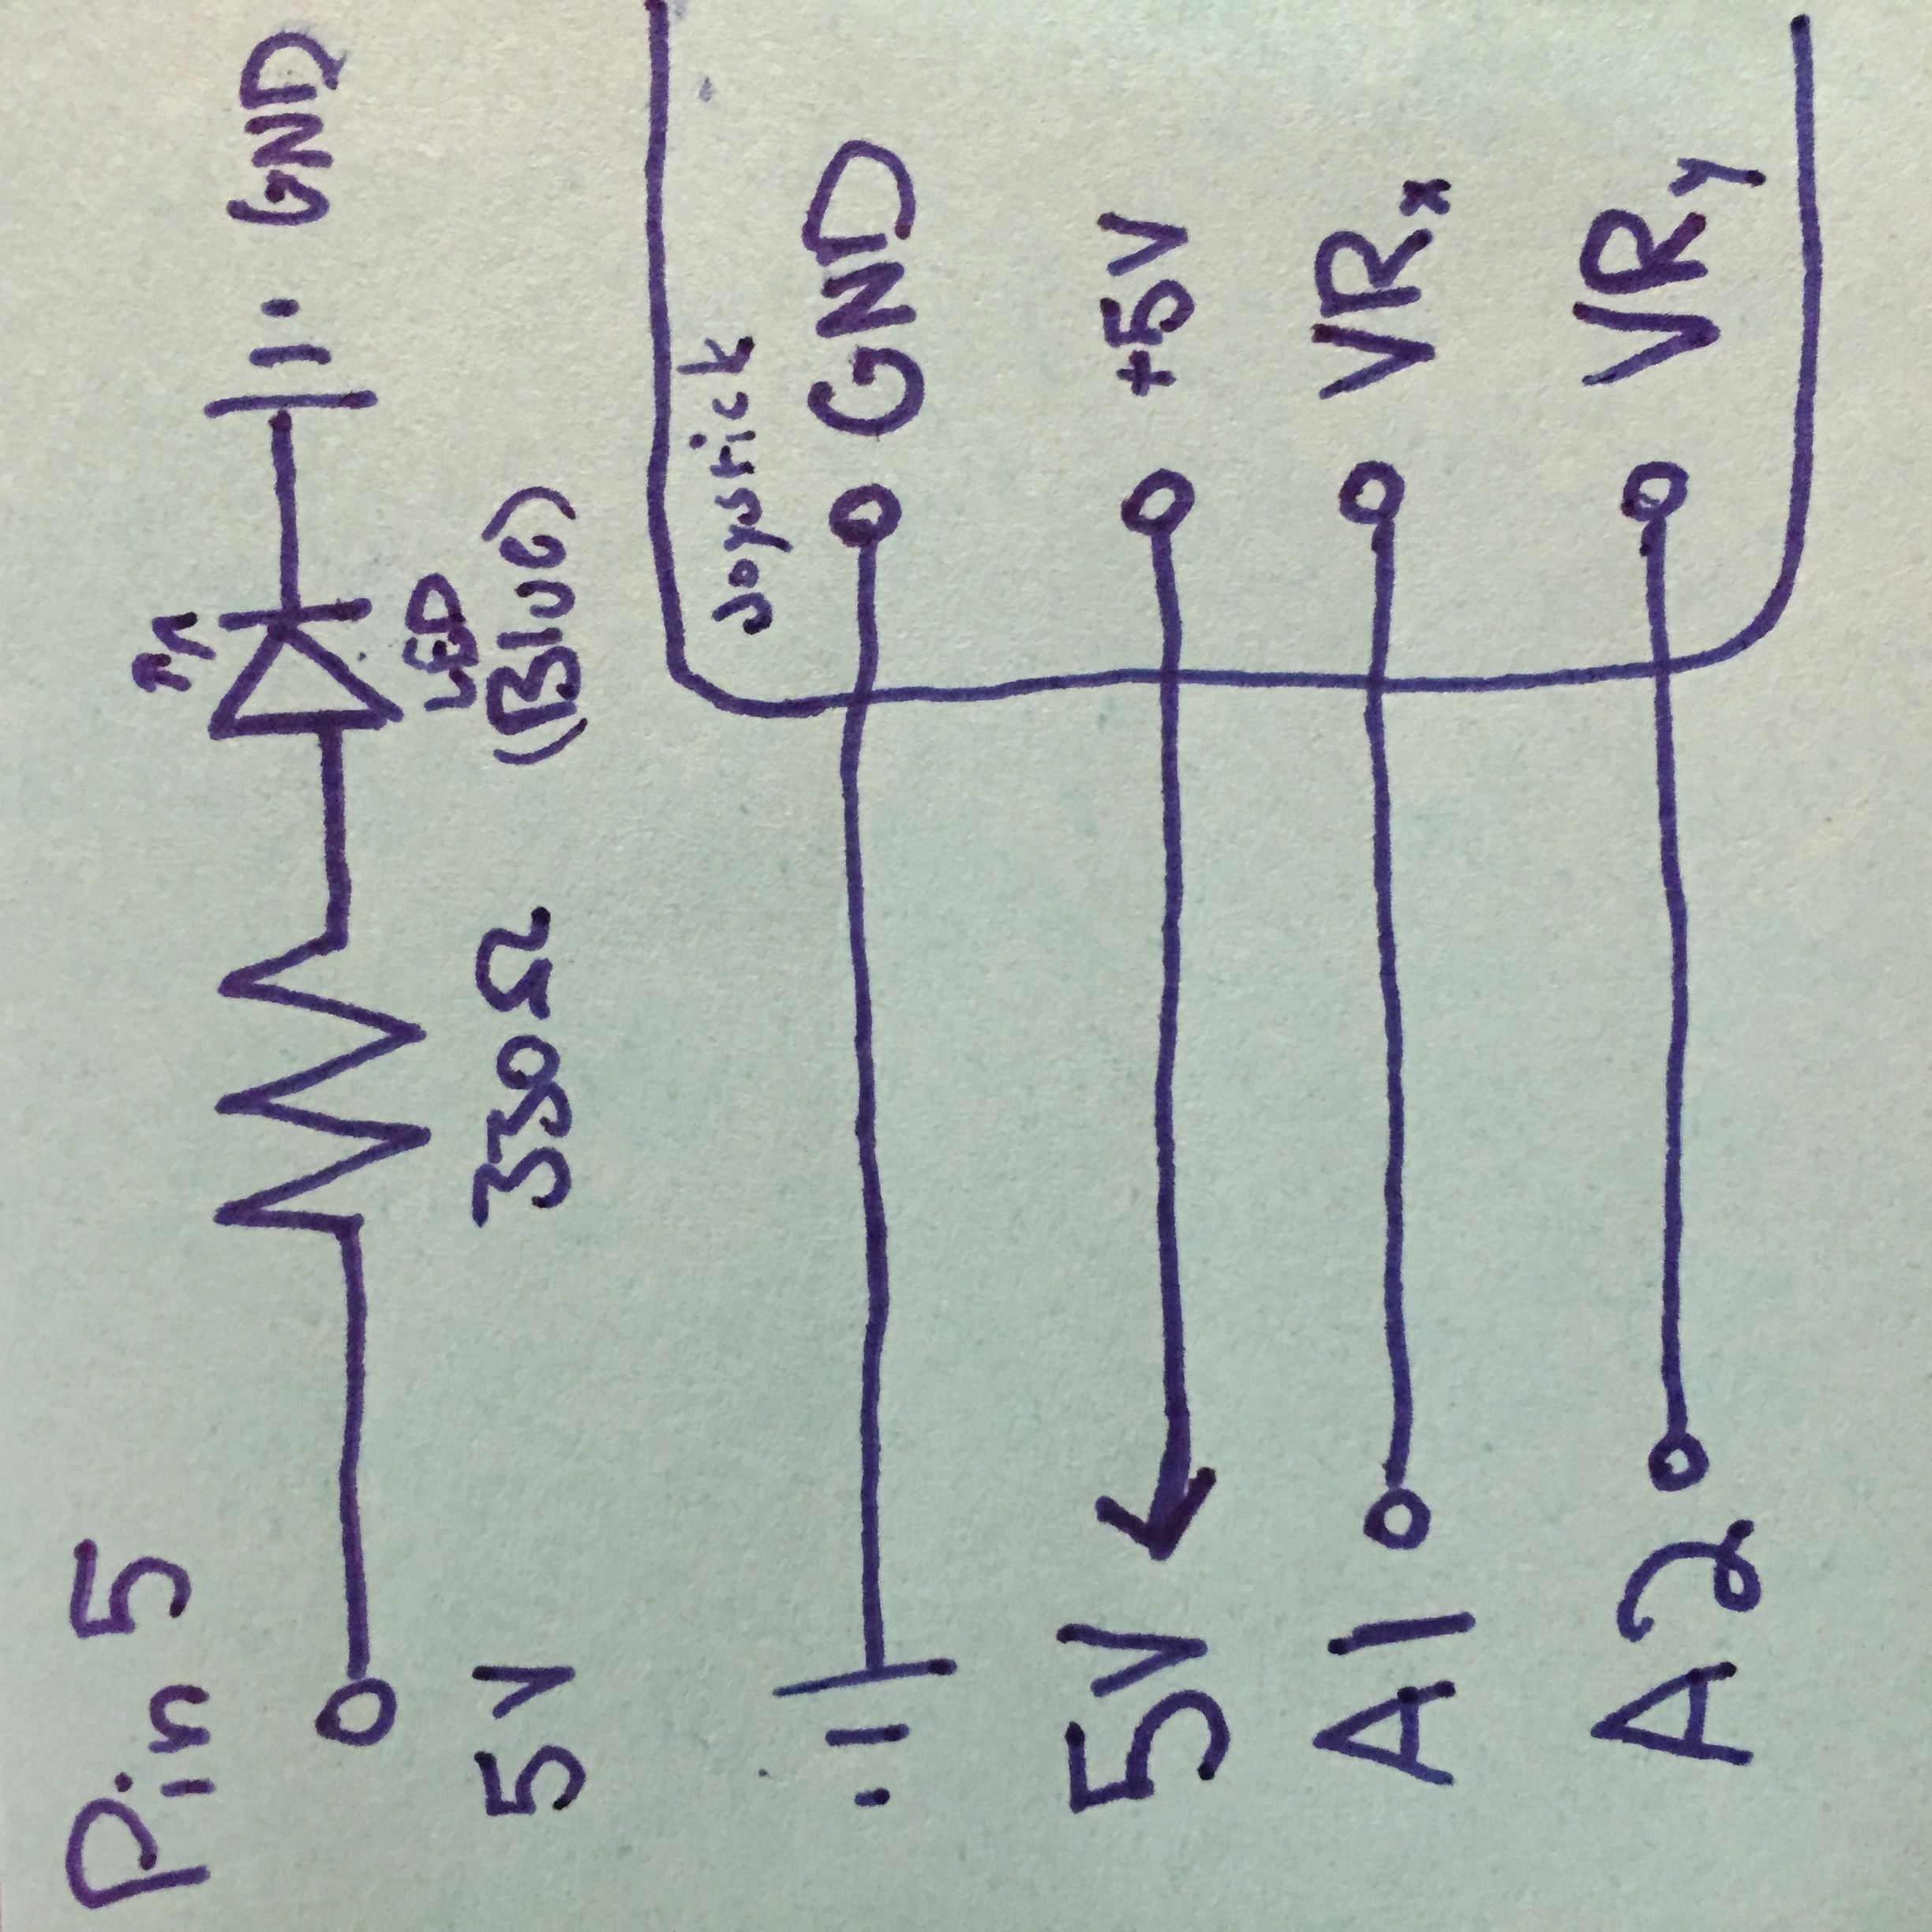 Pin 5
GND
5V
330Ω
LED
(Blue)
Joystick
GND
5V
+5V
A1
VRx
A2
VRy